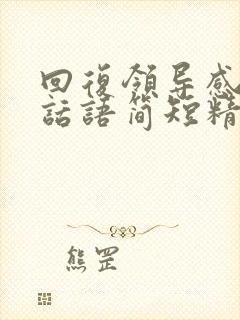 回復領导感
話語简短精
熊罡